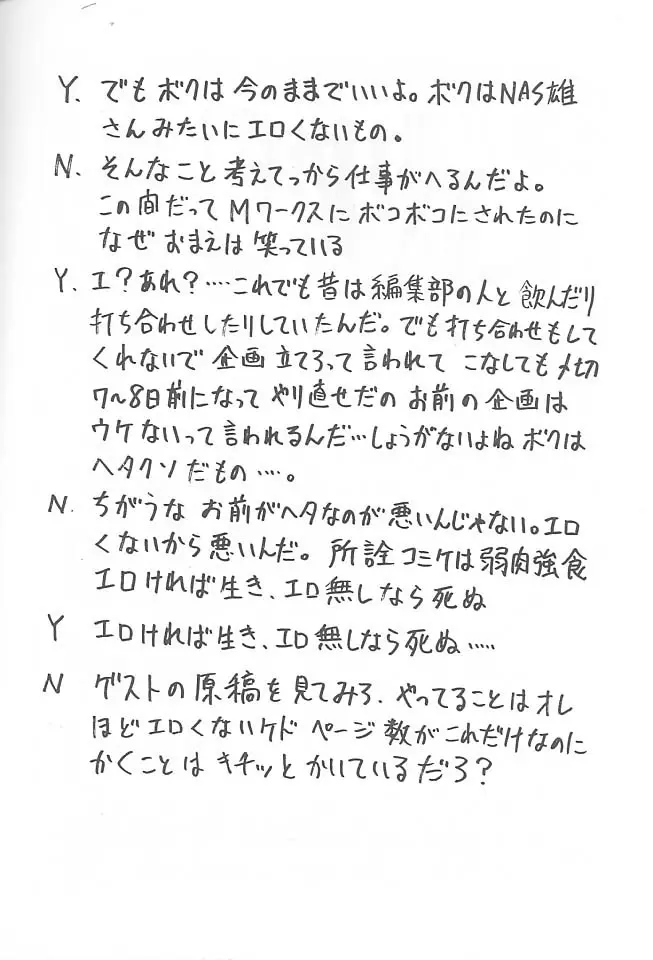 Y. でもボクは今のままでいいよ。ボクはNAS雄
さんみたいにエロくないもの。
N. そんなこと考えてっから仕事がへるんだよ。
この間だってMワークスにボコボコにされたのに
なぜおまえは笑っている
Y. エ？あれ？‥‥これでも昔は編集部の人と飲んだり
打ち合わせしたりしていたんだ。でも打ち合わせもして
くれないで企画立てろって言われてこなしても〆切
7〜8日前になってやり直せだのお前の企画は
ウケないって言われるんだ…しょうがないよねボクは
ヘタクソだもの‥‥。
N. ちがうなお前がヘタなのが悪いんじゃない。エロ
くないから悪いんだ。所詮コミケは弱肉強食
エロければ生き、エロ無しなら死ぬ
Y エロければ生き、エロ無しなら死ぬ‥‥‥
N ゲストの原稿を見てみろ、やってることはオレ
ほどエロくないケドページ数がこれだけなのに
かくことはキチッとかいているだろ？